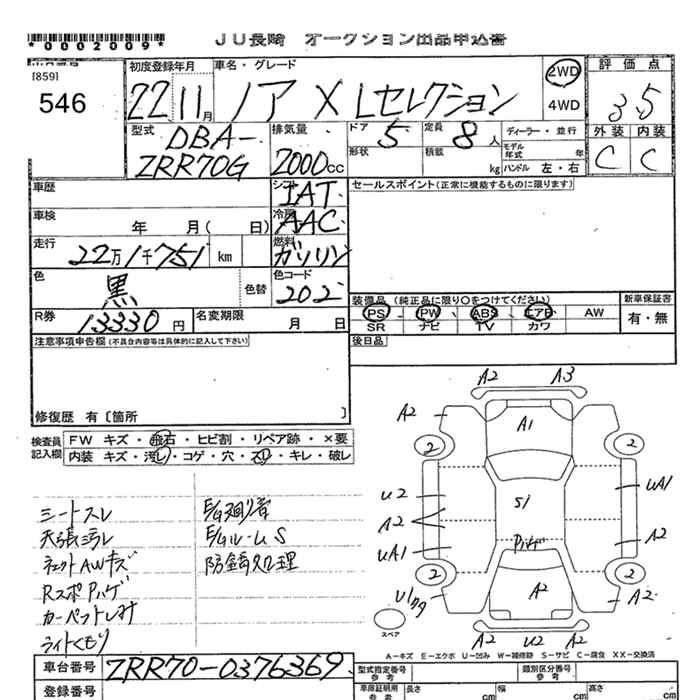 *0002009*
JU長崎 オークション出品申込書
[859]
546
初度登録年月
22 11月
車名・グレード
ノア X Lセレクション
2WD
4WD
評価点
3.5
型式
DBA-
ZRR70G
排気量
2000cc
ドア 5
定員 8人
形状
積載 kg
ディーラー・並行
モデル年式
ハンドル 左・右
外装 内装
C C
車歴
シフト
IAT
セールスポイント(正常に機能するものに限ります)
車検 年 月( 日)
冷房
AAC
走行 22万1千751 km
燃料
ガソリン
色 黒 色替
色コード
202
装備品 (純正品に限り○をつけてください)
PS PW ABS エアB AW
SR ナビ TV カワ
新車保証書
有・無
R券 13330円
名変期限 月 日
後日品
注意事項申告欄(不具合内容等は具体的に記入して下さい)
修復歴 有〔箇所 〕
検査員
記入欄
FW キズ・飛石・ヒビ割・リペア跡・×要
内装 キズ・汚レ・コゲ・穴・スリ・キレ・破レ
シートスレ
天張汚レ
AWキズ
RスポPハゲ
カーペットしみ
ライトくもり
E/G廻り音
E/Gルーム S
防錆処理
A2 A3
A2 A1
2 2
U2 S1 UA1
A2
UA1 Pハゲ A2
2 2
A2 A2
スペア
A2 U2 A2
A-キズ E-エクボ U-凹み W-補修跡 S-サビ C-腐食 XX-交換済
車台番号 ZRR70-0376369
型式指定番号
参考
類別区分番号
参考
登録番号
車庫証明用
参考
長さ cm 幅 cm 高さ cm